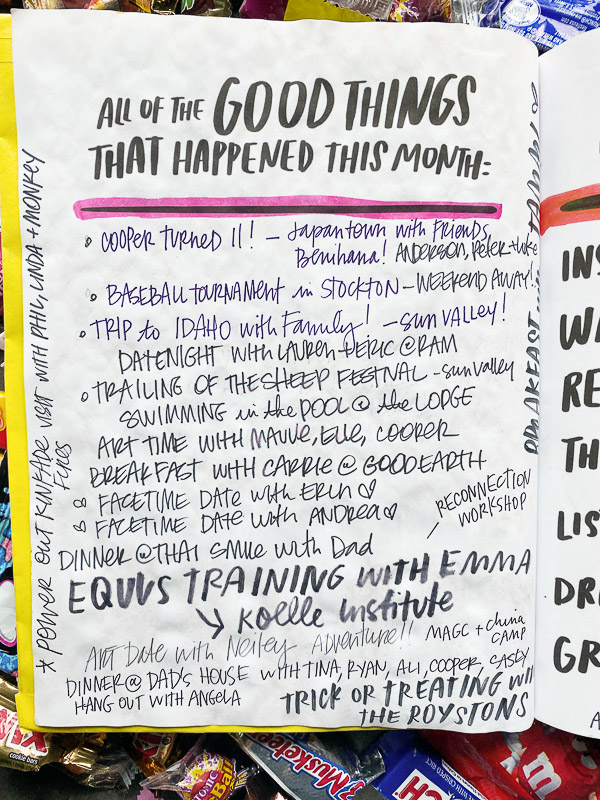 ALL OF THE GOOD THINGS
THAT HAPPENED THIS MONTH:
COOPER TURNED 11! – Japantown with Friends,
Benihana! ANDERSON, Peter + Luke
BASEBALL TOURNAMENT in STOCKTON – WEEKEND AWAY!
TRIP to IDAHO with Family! – SUN VALLEY!
DATE NIGHT WITH LAUREN + ERIC @ RAM
TRAILING OF THE SHEEP FESTIVAL – sun valley
SWIMMING in the POOL @ the LODGE
ART TIME WITH MAUVE, ELLE, COOPER
BREAKFAST WITH CARRIE @ GOOD EARTH
FACETIME DATE with ERIN
FACETIME DATE with ANDREA
RECONNECTION
WORKSHOP
DINNER @ THAI SMILE with Dad
EQUUS TRAINING WITH EMMA
KOELLE Institute
ART Date with Neiley Adventure!! MAGC + China
CAMP
DINNER @ DAD'S HOUSE WITH TINA, RYAN, ALI, COOPER, CASEY
HANG OUT WITH ANGELA
TRICK OR TREATING
THE ROYSTONS
* POWER OUT KINFADE VISIT WITH PHIL, LINDA + MONKEY
BREAKFAST
INS
WA
RE
TH
LIS
DRI
GR
A
cookie bars
Musketeers
CH
m
TONIC